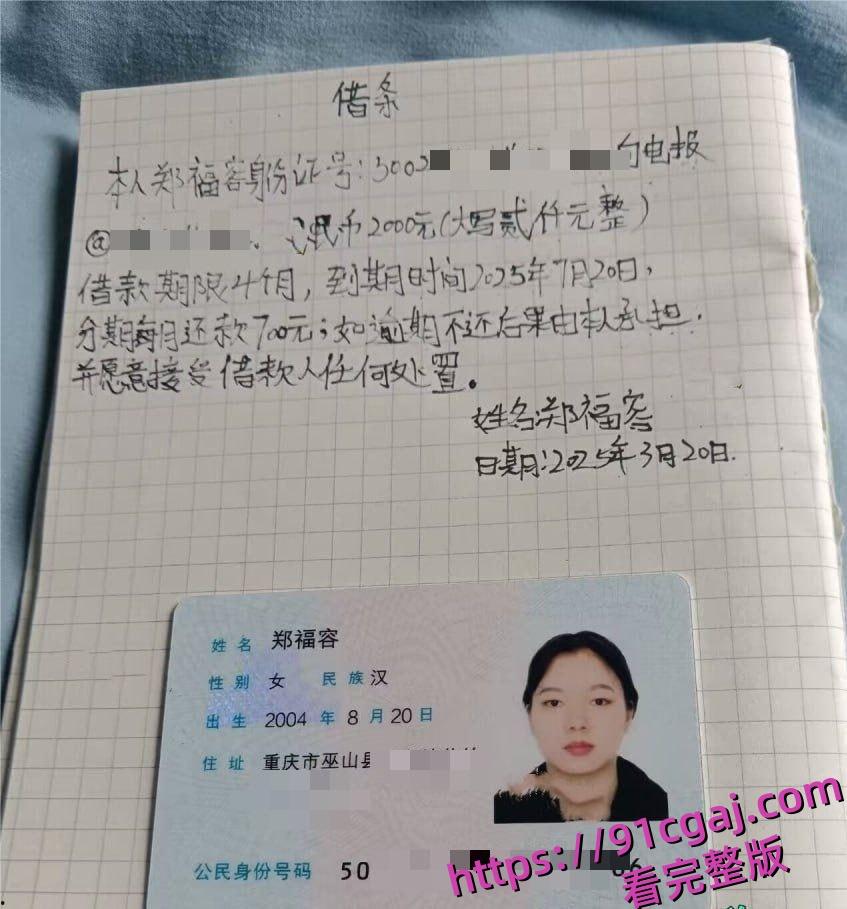 借条
本人郑福容身份证号:5002 向电报
@ 民币2000元(大写贰仟元整)
借款期限4个月,到期日时间2025年7月20日,
分期每月还款700元;如逾期不还后果由本人承担.
并愿意接受借款人任何处置。
姓名:郑福容
日期:2025年3月20日.
姓名 郑福容
性别 女 民族 汉
出生 2004 年 8 月 20 日
住址 重庆市巫山县
公民身份号码 50 06
https://91cgaj.com
看完整版